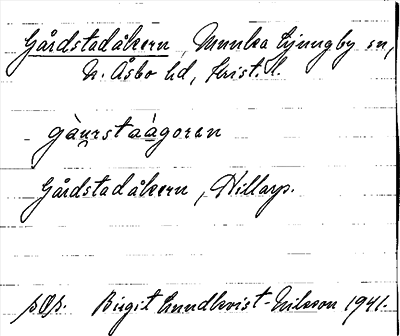 Gårdstadåkern, Munka Ljungby sn,
N. Åsbo hd, Krist. l.
gàu̯rstaágoran
Gårdstadåkern, Hillarp.
Birgit Lundkvist-Nilsson 1941.